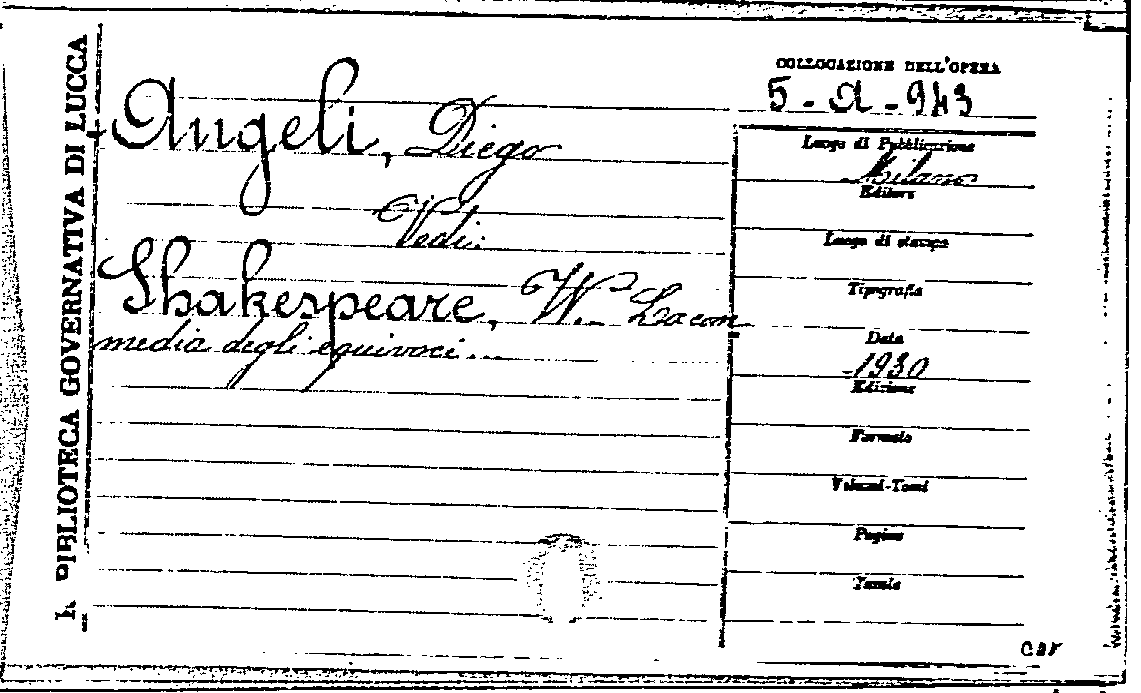 R. BIBLIOTECA GOVERNATIVA DI LUCCA
COLLOCAZIONE DELL'OPERA
5-A-943
Angeli, Diego
Vedi:
Shakespeare, W. La com
media degli equivoci...
Luogo di Pubblicazione
Milano
Editore
Luogo di stampa
Tipografia
Data
1930
Edizione
Formato
Volumi-Tomi
Pagine
Tavole
car